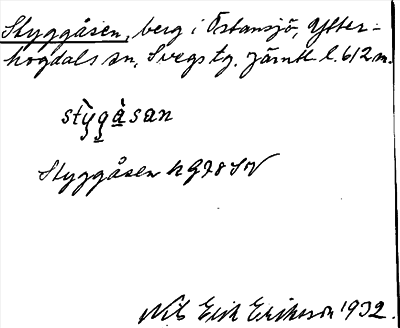 Styggåsen, berg i Östansjö, Ytter-
hogdals sn, Svegs tg. Jämtl. l. 612 m.
stỳgàsan
Styggåsen h 978 SV
Nils Erik Erikson 1932.